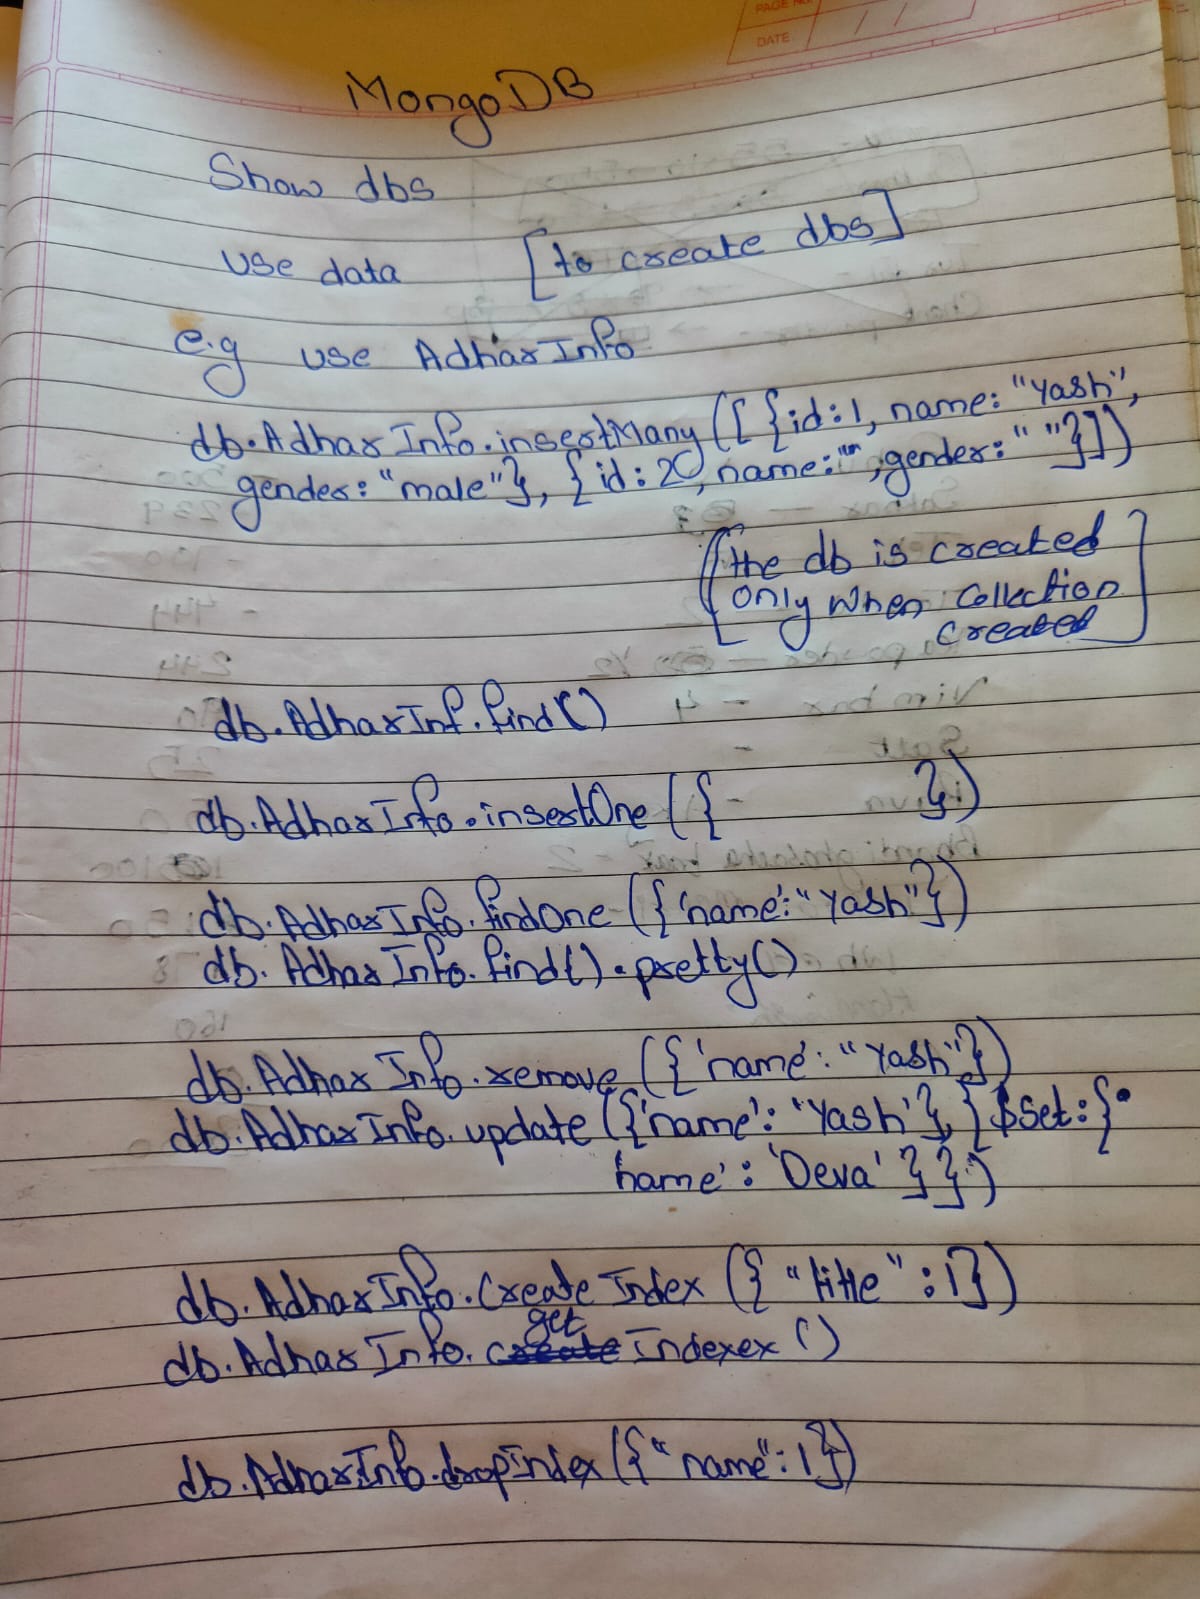 PAGE NO.
DATE
MongoDB
Show dbs
use data [to create dbs]
e.g use AdharInfo
db.AdharInfo.insertMany([{id:1, name: "Yash",
gender: "male"}, {id:20, name:"", gender: " "}])
[the db is created
only when collection
created]
db.AdharInf.find()
db.AdharInfo.insertOne({ })
db.AdharInfo.findOne({'name': "Yash"})
db.AdharInfo.find().pretty()
db.AdharInfo.remove({'name': "Yash"})
db.AdharInfo.update({'name': 'Yash'}, {$set:{'
name': 'Deva'}})
db.AdharInfo.CreateIndex({"title":1})
get
db.AdharInfo.create Indexex()
db.AdharInfo.dropIndex({"name":1})